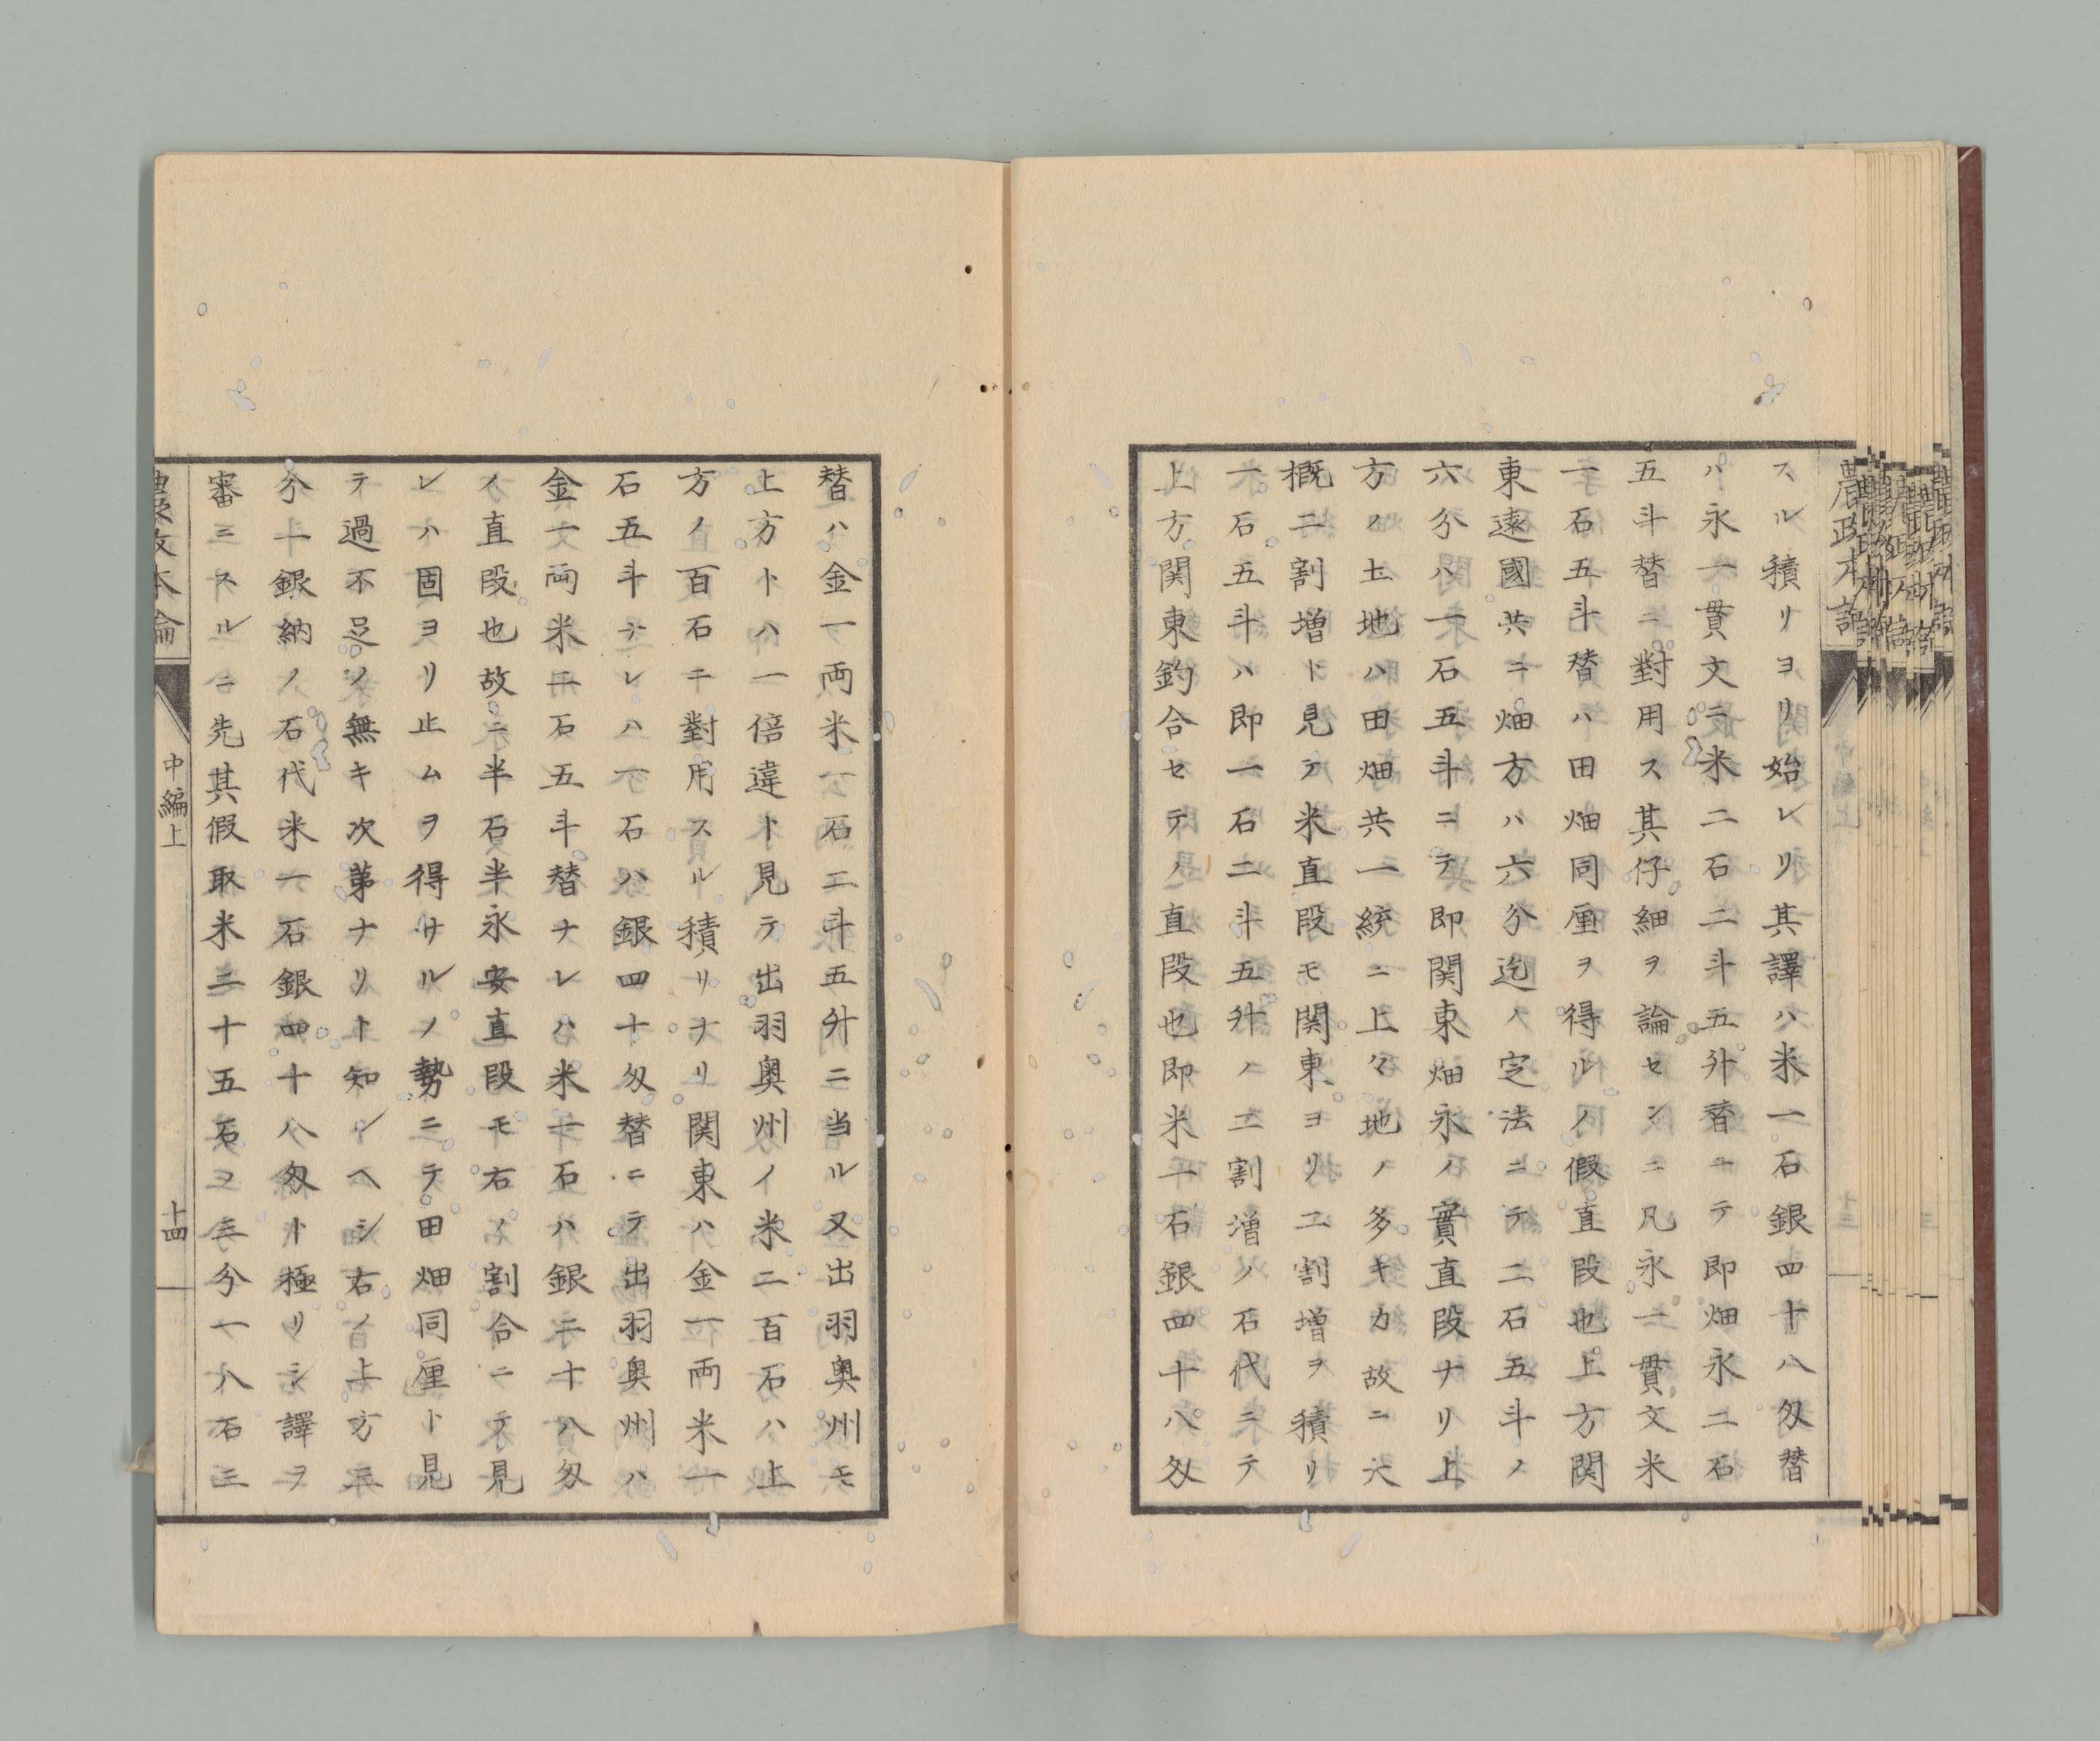 スル積リヨリ始レリ其譯ハ米一石銀四十八匁替
ハ永一貫文ニ米二石二斗五升替ニテ即畑永二石
五斗替ニ對用ス其仔細ヲ論センニ凡永一貫文米
一石五斗替ハ田畑同厘ヲ得ルノ假直段也上方関
東遠國共ニ畑方ハ六分迄ノ定法ニテ二石五斗ノ
六分ハ一石五斗ニテ即関東畑永ノ實直段ナリ上
方ノ土地ハ田畑共一統ニ上々地ノ多キカ故ニ大
概二割増ト見テ米直段モ関東ヨリ二割増ヲ積リ
一石五斗ハ即一石二斗五升ノ二割増ノ石代ニテ
上方関東釣合セテノ直段也即米一石銀四十八匁
替ハ金一両米一石二斗五升ニ当ル又出羽奥州モ
上方トハ一倍違ト見テ出羽奥州ノ米二百石ハ上
方ノ百石ニ對用スル積リナリ関東ハ金一両米一
石五斗テレハ一石ハ銀四十匁替ニテ出羽奥州ハ
金一両米二石五斗替ナレハ米一石ハ銀二十八匁
ノ直段也故ニ半石半永安直段モ右ノ割合ニテ見
レハ固ヨリ止ムヲ得サルノ勢ニテ田畑同厘ト見
テ過不足ノ無キ次第ナリト知ルヘシ右ノ上方三
分一銀納ノ石代米一石銀四十八匁ト極リシ譯ヲ
審ニスルニ先其假取米三十五石ヲ三分一八石三
農政本論
中編上
十四
農政本論